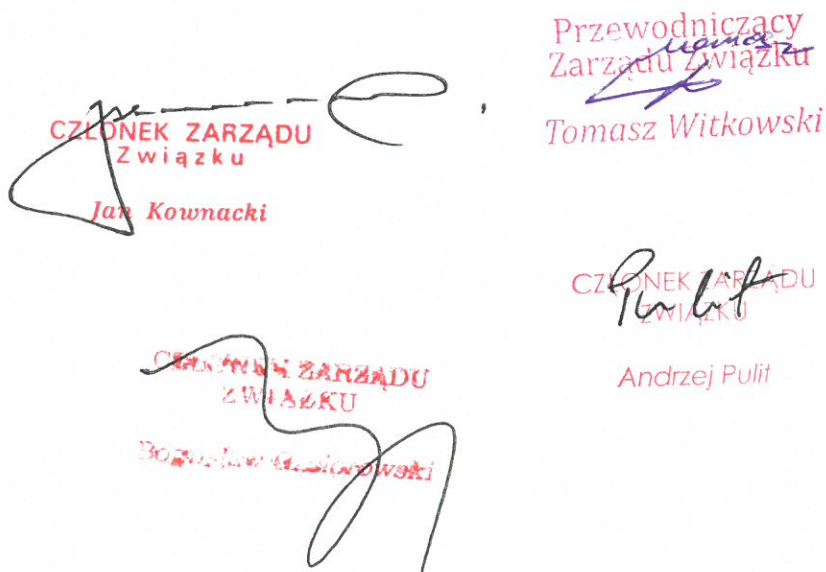 Przewodniczący
Zarządu Związku
Tomasz Witkowski
CZŁONEK ZARZĄDU
Związku
Jan Kownacki
CZŁONEK ZARZĄDU
ZWIĄZKU
Andrzej Pulit
CZŁONEK ZARZĄDU
ZWIĄZKU
Bogusław Gąsiorowski